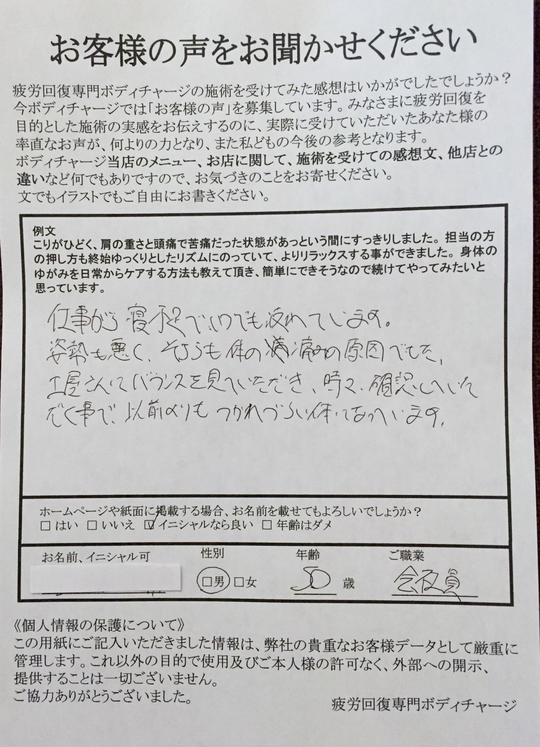 お客様の声をお聞かせください
疲労回復専門ボディチャージの施術を受けてみた感想はいかがでしたでしょうか?
今ボディチャージでは「お客様の声」を募集しています。みなさまに疲労回復を
目的とした施術の実感をお伝えするのに、実際に受けていただいたあなた様の
率直なお声が、何よりの力となり、また私どもの今後の参考となります。
ボディチャージ当店のメニュー、お店に関して、施術を受けての感想文、他店との
違いなど何でもありですので、お気づきのことをお寄せください。
文でもイラストでもご自由にお書きください。
例文
こりがひどく、肩の重さと頭痛で苦痛だった状態があっという間にすっきりしました。担当の方
の押し方も終始ゆっくりとしたリズムにのっていて、よりリラックスする事ができました。身体の
ゆがみを日常からケアする方法も教えて頂き、簡単にできそうなので続けてやってみたいと
思っています。
仕事がら寝不足でいつでも疲れています。
姿勢も悪く、そちらも体の痛みの原因でした。
土屋さんにバランスを見ていただき、時々、確認していて
だく事で、以前よりもつかれづらい体になっています。
ホームページや紙面に掲載する場合、お名前を載せてもよろしいでしょうか?
□はい □いいえ ☑イニシャルなら良い □年齢はダメ
お名前、イニシャル可 性別 年齢 ご職業
□男 □女 50 歳 会社員
《個人情報の保護について》
この用紙にご記入いただきました情報は、弊社の貴重なお客様データとして厳重に
管理します。これ以外の目的で使用及びご本人様の許可なく、外部への開示、
提供することは一切ございません。
ご協力ありがとうございました。
疲労回復専門ボディチャージ